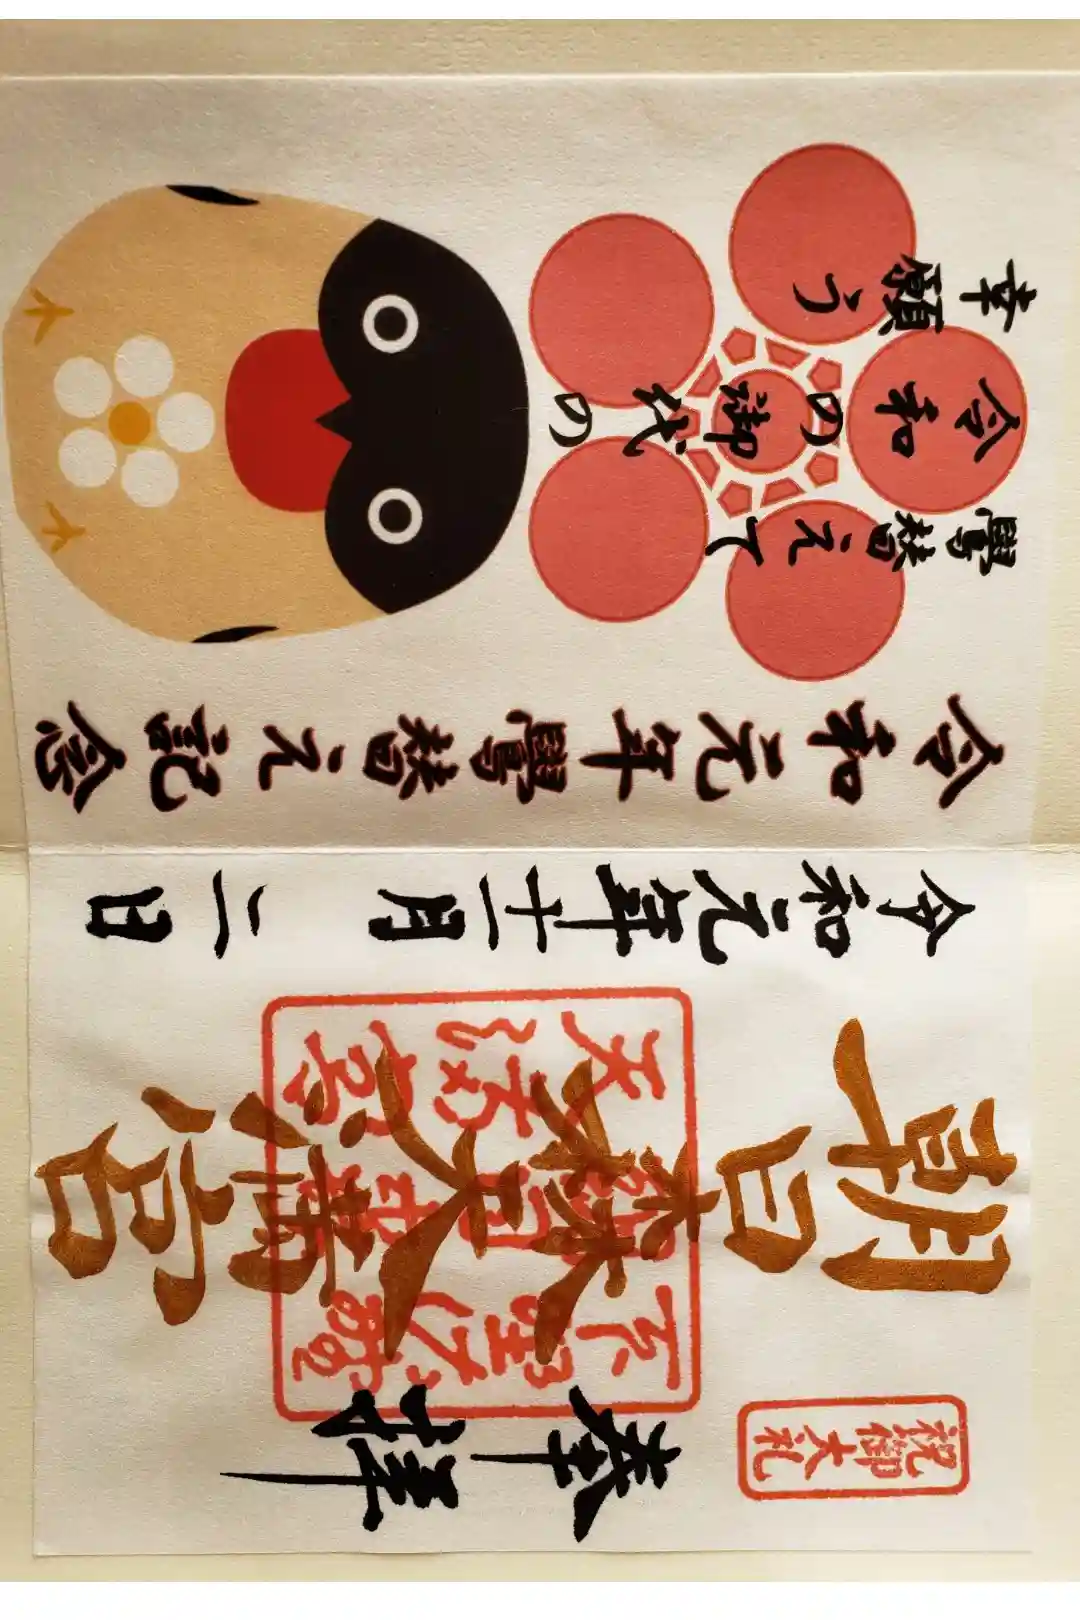 祝御大礼
奉拝
朝日森天満宮
令和元年十一月二日
令和元年鷽替え記念
鷽替えて
令和の御代の
幸願う